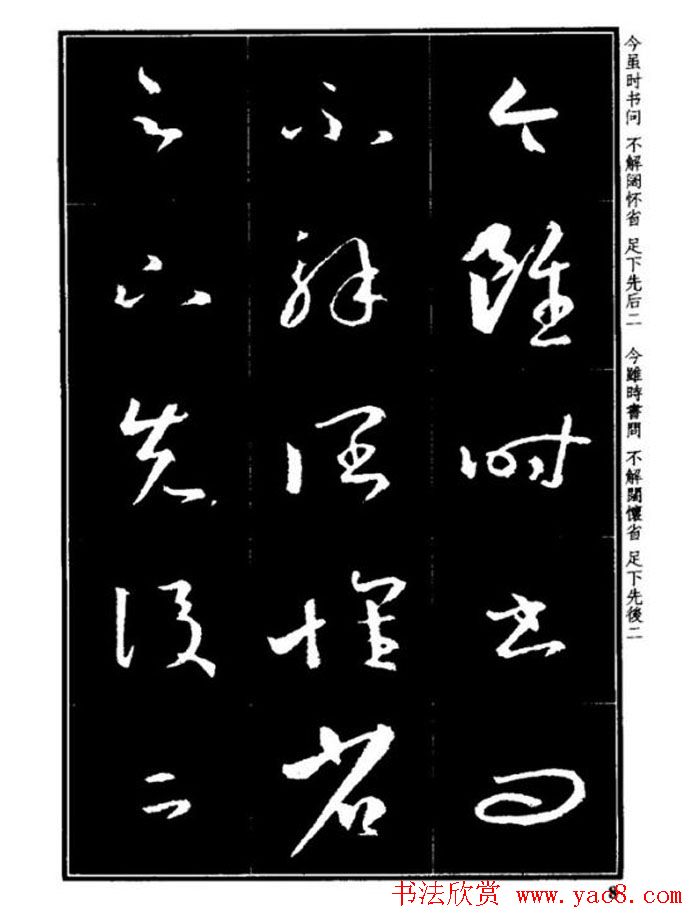 今雖時書問
不解闊懷省
足下先後二
今虽时书问 不解阔怀省 足下先后二
今雖時書問 不解闊懷省 足下先後二
8
书法欣赏 www.yac8.com